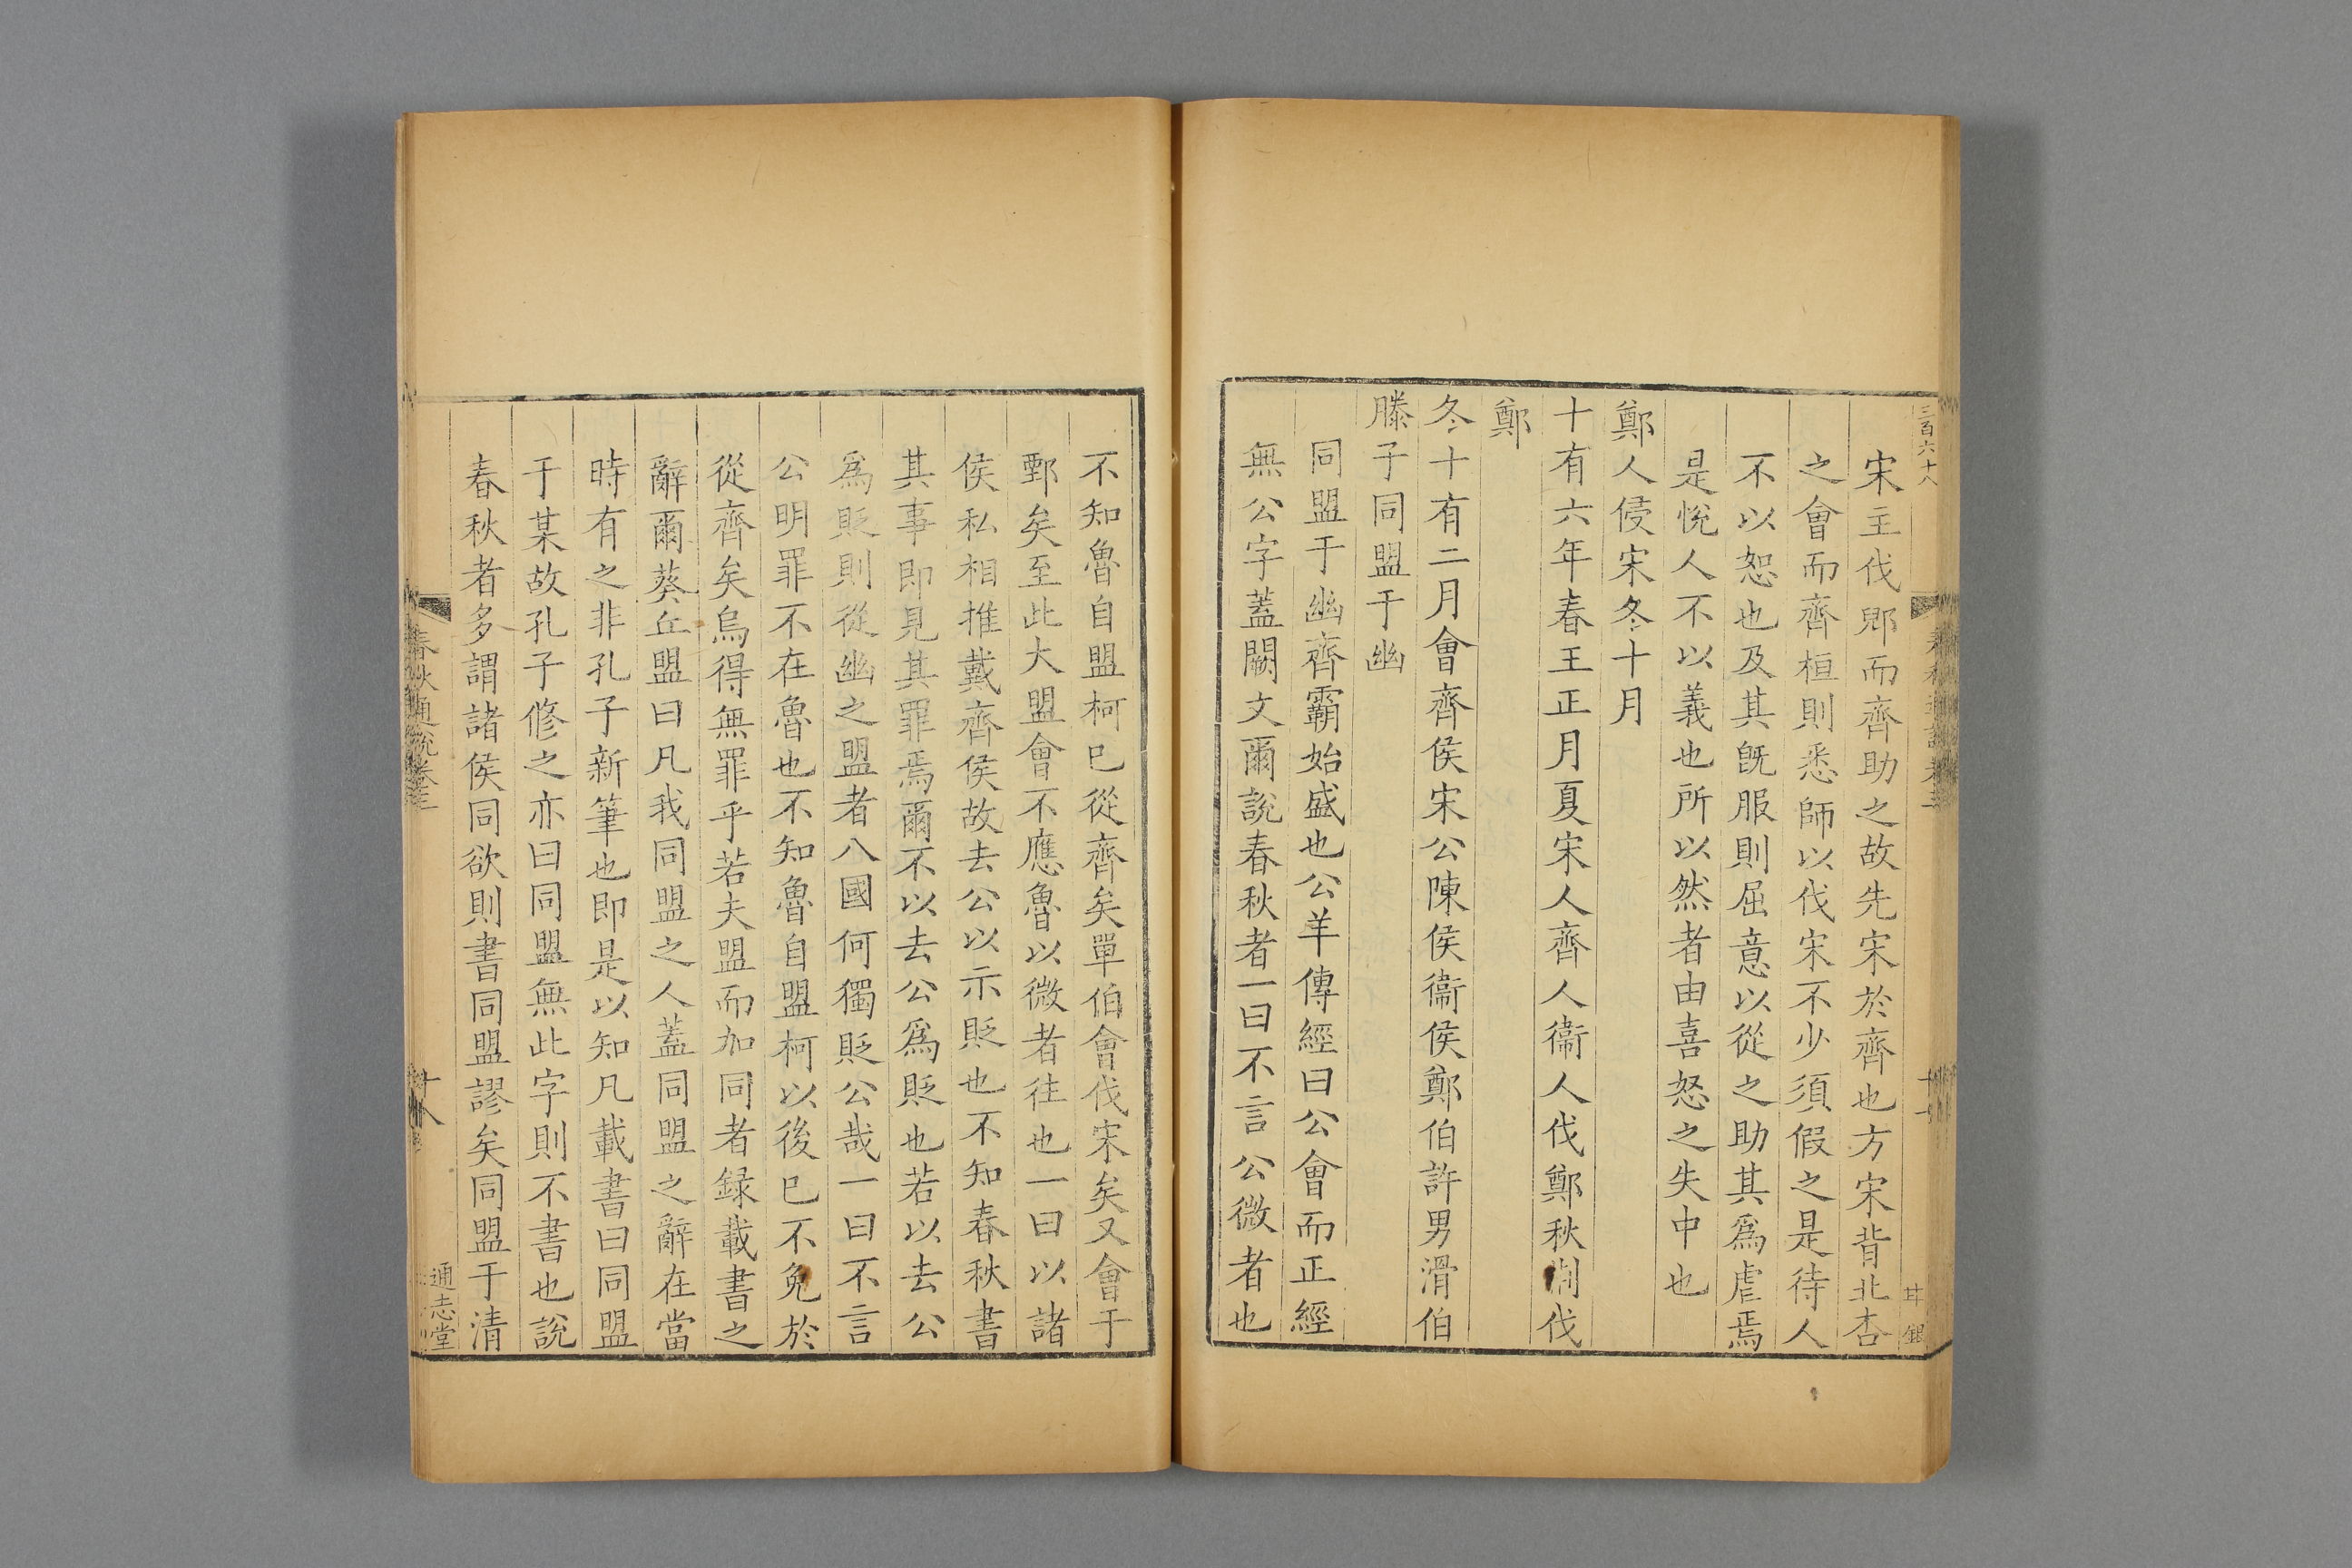 三百六十八
宋主伐郳而齊助之故先宋於齊也方宋背北杏
之會而齊桓則悉師以伐宋不少須假之是待人
不以恕也及其旣服則屈意以從之助其爲虐焉
是悅人不以義也所以然者由喜怒之失中也
鄭人侵宋冬十月
十有六年春王正月夏宋人齊人衞人伐鄭秋荆伐
鄭
冬十有二月會齊侯宋公陳侯衞侯鄭伯許男滑伯
滕子同盟于幽
同盟于幽齊霸始盛也公羊傳經曰公會而正經
無公字蓋闕文爾說春秋者一曰不言公微者也
不知魯自盟柯已從齊矣單伯會伐宋矣又會于
鄄矣至此大盟會不應魯以微者往也一曰以諸
侯私相推戴齊侯故去公以示貶也不知春秋書
其事即見其罪焉爾不以去公爲貶也若以去公
爲貶則從幽之盟者八國何獨貶公哉一曰不言
公明罪不在魯也不知魯自盟柯以後已不免於
從齊矣烏得無罪乎若夫盟而加同者録載書之
辭爾葵丘盟曰凡我同盟之人蓋同盟之辭在當
時有之非孔子新筆也即是以知凡載書曰同盟
于某故孔子修之亦曰同盟無此字則不書也說
春秋者多謂諸侯同欲則書同盟謬矣同盟于清
春秋通說卷三
十八
通志堂